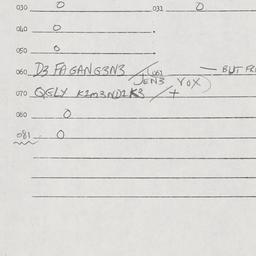 030 0 031 0
040 0
050 0
060 D3 FAGANG3N3 / (061 — BUT
J3N3 YOX)
070 QGLY K1M3ND1K3 / +
080 0
081 0